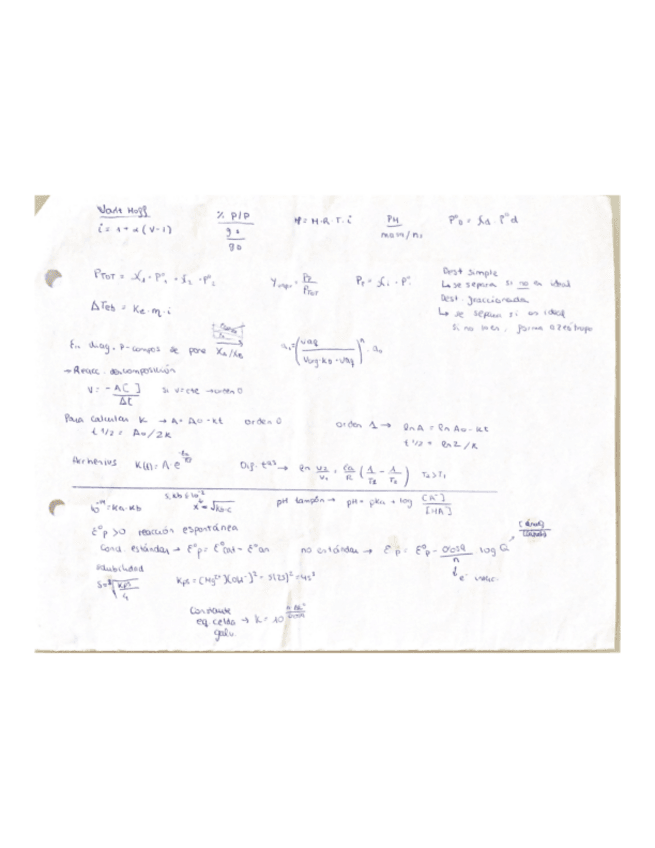 Vant Hoff
i = 1 + α (V-1)
% P/P
g s
g D
π = M · R · T · i
PM
P°
PTOT = X1 · P°1 + X2 · P°2
Yvapor = Pp / PTOT
Pp = Xi · P°
Dest simple
↳ se separa si no es ideal
Dest. fraccionada
↳ se separa si es ideal
si no lo es, forma azeótropo
ΔTeb = Ke · m · i
En diag. P-compos se pone XA/XB
an = (Vaq / Vorg · KD + Vaq)^n · ao
→ Reacc. descomposición
V = -Δ[ ] / Δt si V = cte → orden 0
Para calcular K → A = Ao - kt orden 0
t 1/2 = Ao / 2K
orden 1 → ln A = ln Ao - Kt
t 1/2 = ln 2 / K
Arrhenius K(t) = A · e^-Ea/RT
Dif. tas → ln V2/V1 = Ea/R (1/T2 - 1/T1) T2 > T1
10^-14 = Ka · Kb
x = √Kb·C
pH tampón → pH = pKa + log [A-] / [HA]
E°p > 0 reacción espontánea
Cond. estándar → E°p = E°cat - E°an
no estándar → E p = E°p - 0'059 / n log Q
e- interc.
Solubilidad
S = ³√Kps / 4
Kps = [Mg2+][OH-]² = S(2S)² = 4S³
Constante
eq. celda → K = 10
galv.